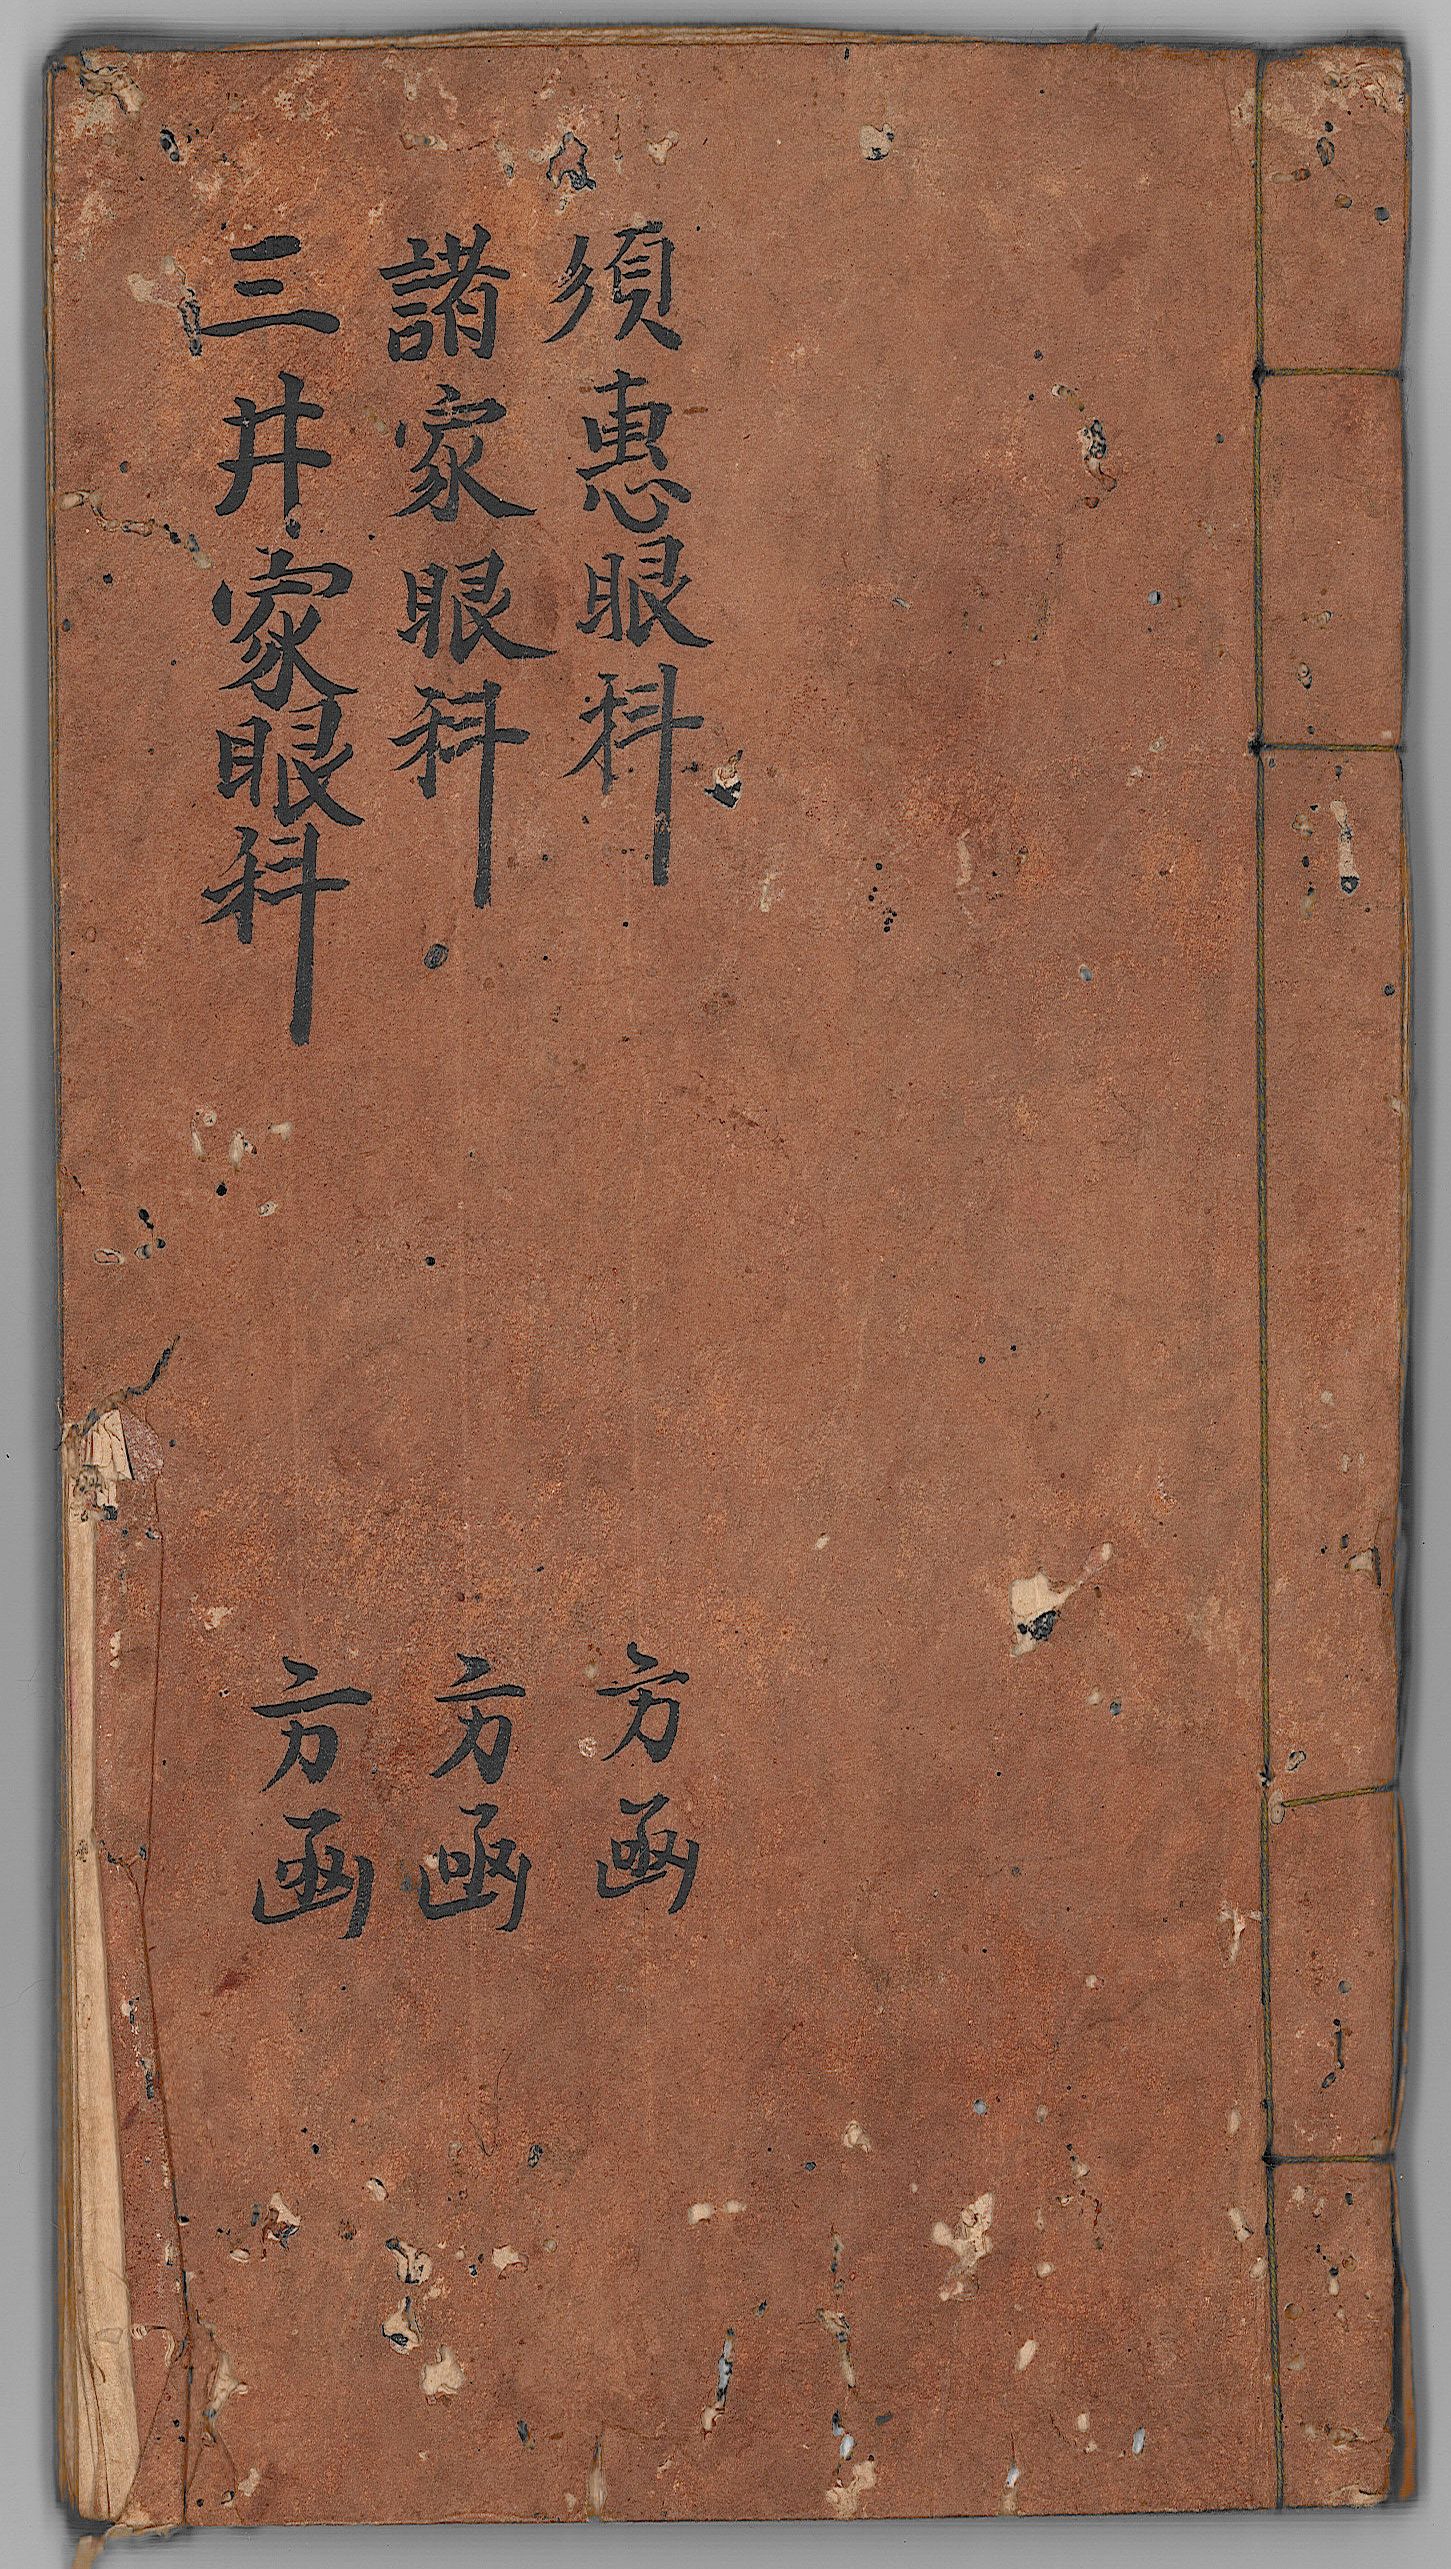 須惠眼科 方函
諸家眼科 方函
三井家眼科 方函